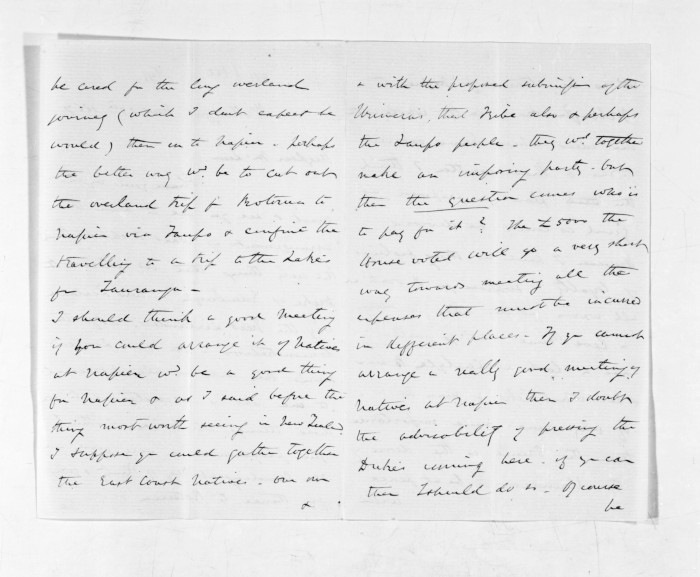 be cared for the long overland
journey (which I don't expect he
would) then on to Napier - perhaps
the better way wd. be to cut out
the overland trip fr Rotorua to
Napier via Taupo & confine the
travelling to a trip to the Lakes
fr Tauranga -
I should think a good meeting
if you could arrange it of Natives
at Napier wd. be a good thing
for Napier & as I said before the
thing most worth seeing in New Zealand
I suppose you could gather together
the East Coast Natives - our own
&
& with the proposed submission of the
Uriweras, that Tribe also & perhaps
the Taupo people - they wd. together
make an imposing party - but
then the question comes who is
to pay for it? The £5000 the
House voted will go a very short
way towards meeting all the
expenses that must be incurred
in different places - If you cannot
arrange a really good meeting of
Natives at Napier then I doubt
the advisability of pressing the
Duke's coming here - if you can
then I should do so - Of course
he